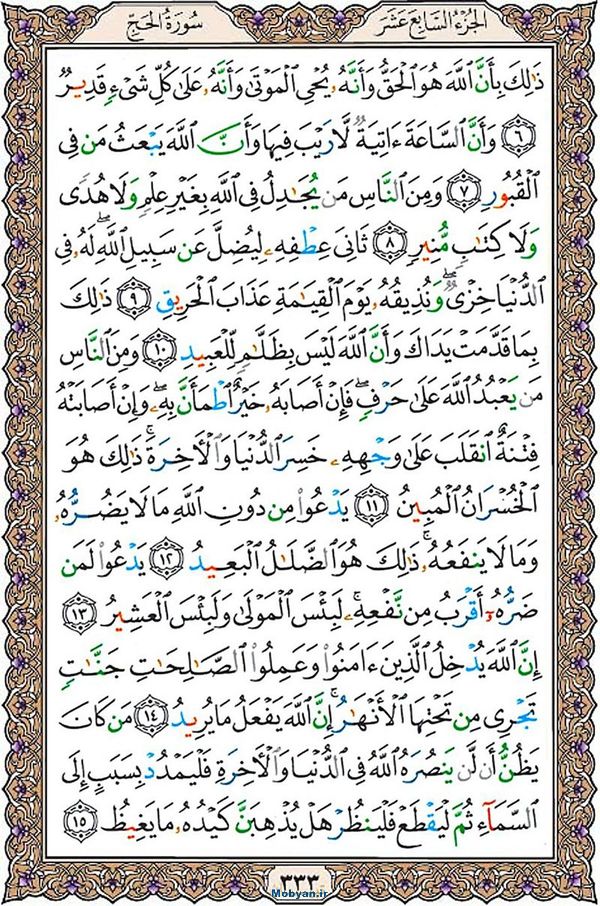 الجزء السابع عشر
سورة الحج
ذَٰلِكَ بِأَنَّ ٱللَّهَ هُوَ ٱلْحَقُّ وَأَنَّهُۥ يُحْىِ ٱلْمَوْتَىٰ وَأَنَّهُۥ عَلَىٰ كُلِّ شَىْءٍ قَدِيرٌ
٦ وَأَنَّ ٱلسَّاعَةَ ءَاتِيَةٌ لَّا رَيْبَ فِيهَا وَأَنَّ ٱللَّهَ يَبْعَثُ مَن فِى
ٱلْقُبُورِ ٧ وَمِنَ ٱلنَّاسِ مَن يُجَٰدِلُ فِى ٱللَّهِ بِغَيْرِ عِلْمٍ وَلَا هُدًى
وَلَا كِتَٰبٍ مُّنِيرٍ ٨ ثَانِىَ عِطْفِهِۦ لِيُضِلَّ عَن سَبِيلِ ٱللَّهِ ۖ لَهُۥ فِى
ٱلدُّنْيَا خِزْىٌ ۖ وَنُذِيقُهُۥ يَوْمَ ٱلْقِيَٰمَةِ عَذَابَ ٱلْحَرِيقِ ٩ ذَٰلِكَ
بِمَا قَدَّمَتْ يَدَاكَ وَأَنَّ ٱللَّهَ لَيْسَ بِظَلَّٰمٍ لِّلْعَبِيدِ ١٠ وَمِنَ ٱلنَّاسِ
مَن يَعْبُدُ ٱللَّهَ عَلَىٰ حَرْفٍ ۖ فَإِنْ أَصَابَهُۥ خَيْرٌ ٱطْمَأَنَّ بِهِۦ ۖ وَإِنْ أَصَابَتْهُ
فِتْنَةٌ ٱنقَلَبَ عَلَىٰ وَجْهِهِۦ خَسِرَ ٱلدُّنْيَا وَٱلْءَاخِرَةَ ۚ ذَٰلِكَ هُوَ
ٱلْخُسْرَانُ ٱلْمُبِينُ ١١ يَدْعُوا۟ مِن دُونِ ٱللَّهِ مَا لَا يَضُرُّهُۥ
وَمَا لَا يَنفَعُهُۥ ۚ ذَٰلِكَ هُوَ ٱلضَّلَٰلُ ٱلْبَعِيدُ ١٢ يَدْعُوا۟ لَمَن
ضَرُّهُۥٓ أَقْرَبُ مِن نَّفْعِهِۦ ۚ لَبِئْسَ ٱلْمَوْلَىٰ وَلَبِئْسَ ٱلْعَشِيرُ ١٣
إِنَّ ٱللَّهَ يُدْخِلُ ٱلَّذِينَ ءَامَنُوا۟ وَعَمِلُوا۟ ٱلصَّٰلِحَٰتِ جَنَّٰتٍ
تَجْرِى مِن تَحْتِهَا ٱلْأَنْهَٰرُ ۚ إِنَّ ٱللَّهَ يَفْعَلُ مَا يُرِيدُ ١٤ مَن كَانَ
يَظُنُّ أَن لَّن يَنصُرَهُ ٱللَّهُ فِى ٱلدُّنْيَا وَٱلْءَاخِرَةِ فَلْيَمْدُدْ بِسَبَبٍ إِلَى
ٱلسَّمَآءِ ثُمَّ لْيَقْطَعْ فَلْيَنظُرْ هَلْ يُذْهِبَنَّ كَيْدُهُۥ مَا يَغِيظُ ١٥
٣٣٣
Mobyan.ir